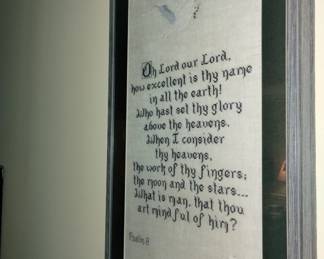 Oh Lord our Lord,
how excellent is thy name
in all the earth!
Who hast set thy glory
above the heavens.
When I consider
thy heavens,
the work of thy fingers;
the moon and the stars...
What is man, that thou
art mindful of him?
Psalm 8